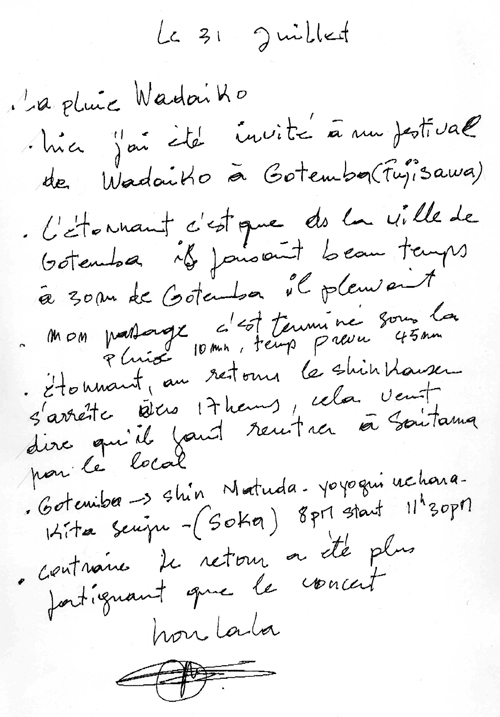 Le 31 Juillet
. La pluie Wadaiko
. hier j'ai été invité à un festival
de Wadaiko à Gotemba (Fujisawa)
. L'étonnant c'est que ds la ville de
Gotemba il faisait beau temps
à 30m de Gotemba il pleuvait
. mon passage c'est terminé sous la
pluie 10mn, temp prevu 45mn
. étonnant, au retour le shinkansen
s'arrête 17heures, cela veut
dire qu'il faut rentrer à Saitama
par le local
. Gotemba → Shin Matuda - yoyogui uehara -
Kita senju - (Soka) 8pM start 11h30pM
. contraire le retour a été plus
fatiguant que le concert
houlala